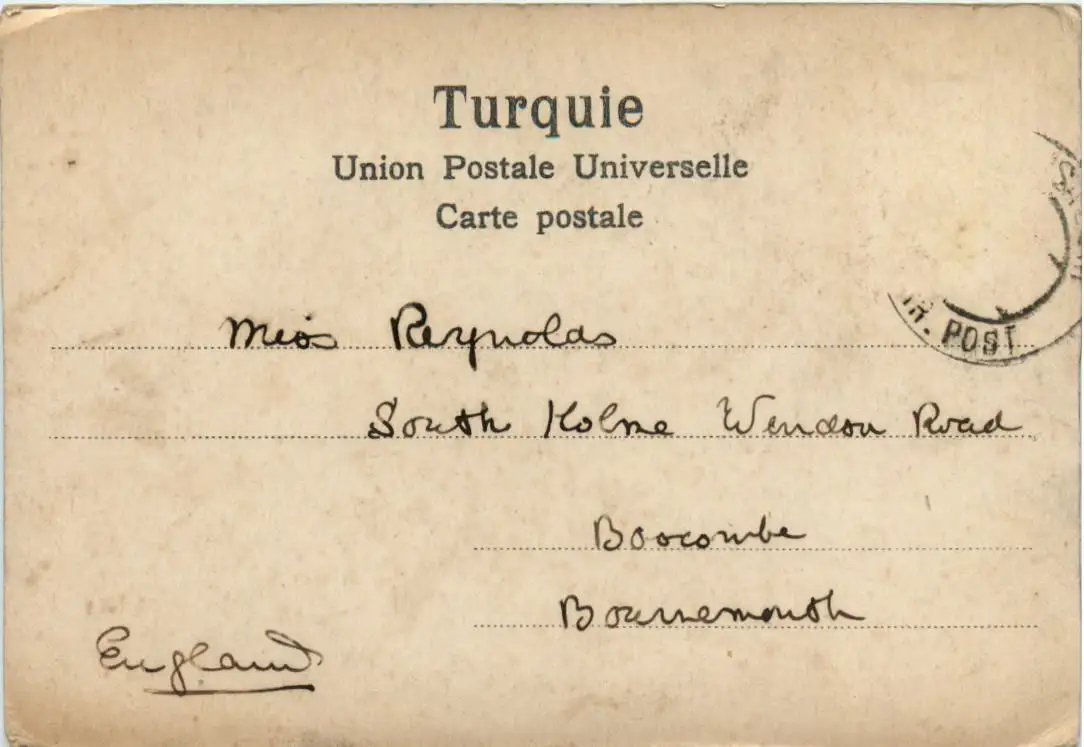 Turquie
Union Postale Universelle
Carte postale
Miss Reynolds
South Holme Wendon Road
Boocombe
Bournemouth
England
POST